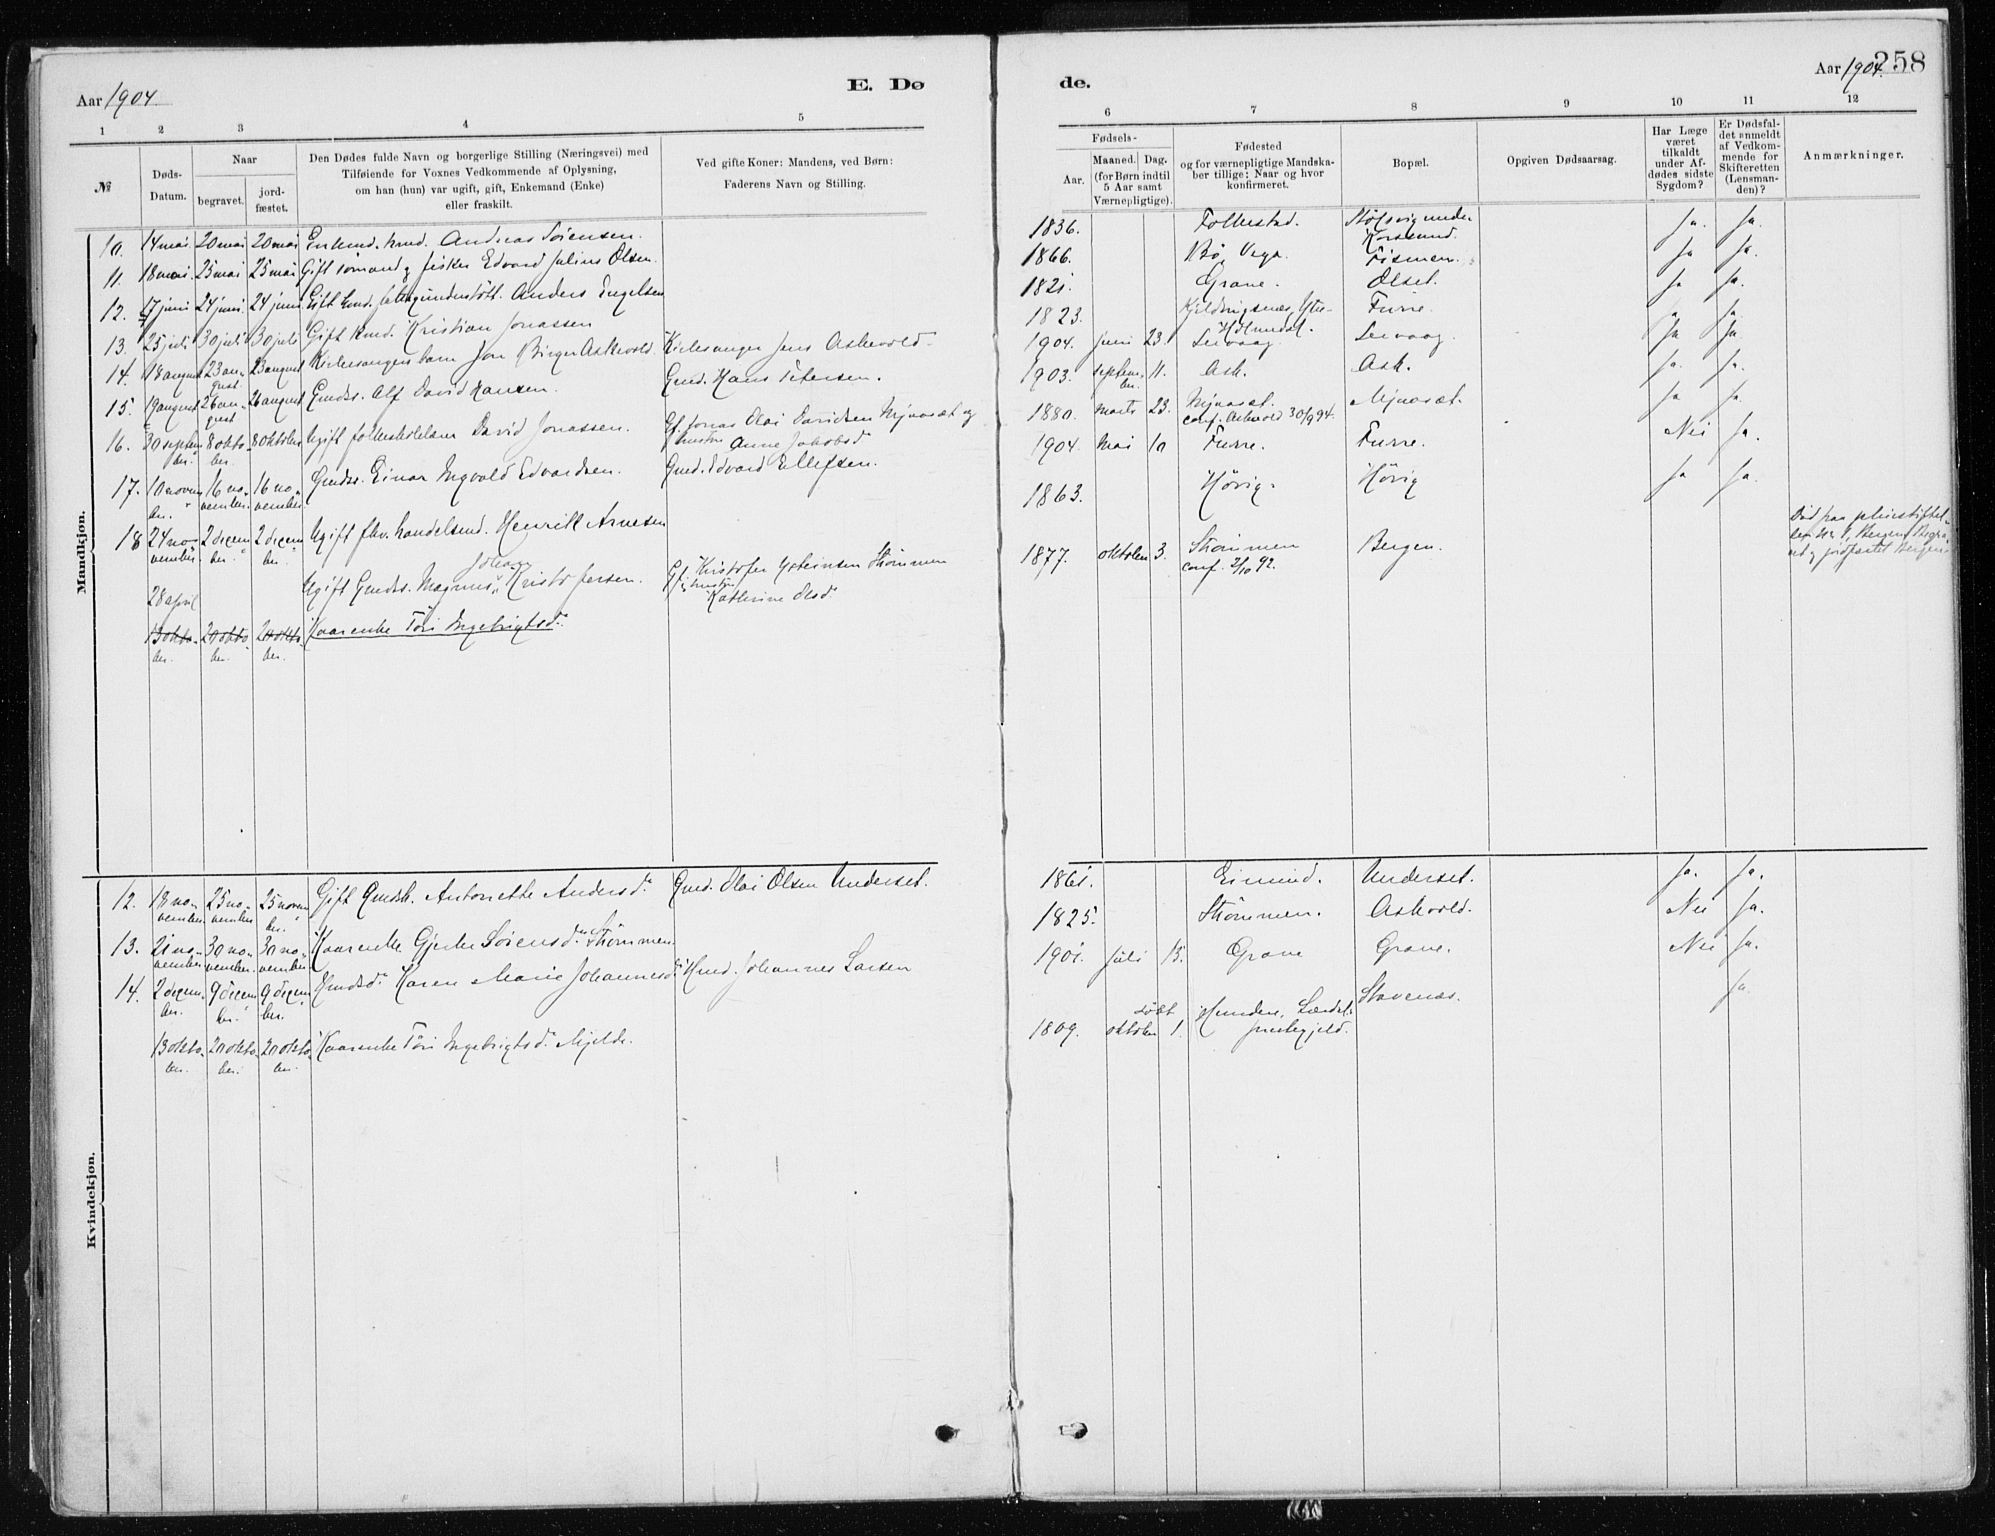 Aar 1904.
E. Dø
de.
Aar 1904.
258
1 2 3 4 5
6 7 8 9 10 11 12
№
Døds-
Datum.
Naar
begravet.
jord-
fæstet.
Den Dødes fulde Navn og borgerlige Stilling (Næringsvei) med
Tilføiende for Voxnes Vedkommende af Oplysning,
om han (hun) var ugift, gift, Enkemand (Enke)
eller fraskilt.
Ved gifte Koner: Mandens, ved Børn:
Faderens Navn og Stilling.
Fødsels-
Aar.
Maaned. Dag.
(for Børn indtil
5 Aar samt
Værnepligtige).
Fødested
og for værnepligtige Mandska-
ber tillige: Naar og hvor
konfirmeret.
Bopæl.
Opgiven Dødsaarsag.
Har Læge
været
tilkaldt
under Af-
dødes sidste
Sygdom?
Er Dødsfal-
det anmeldt
af Vedkom-
mende for
Skifteretten
(Lensman-
den)?
Anmærkninger.
Mandkjøn.
10. 14 mai 20 mai 20 mai Enkemd. Andreas Sørensen. 1836. Folkestad. under Korssund. Ja. Ja.
11. 18 mai 25 mai 25 mai Gift sømand og fisker Edvard Julius Olsen. 1866. Bø, Vega. Ja Ja.
12. 17 juni 24 juni 24 juni Gift Anders Engelsen 1821. Grane. Olset. Ja Ja.
13. 25 juli 30 juli 30 juli Gift Kristian Jonassen 1823. Furre. Ja Ja.
14. 18 august 23 au-
gust 23 august Kirkesangers barn Jon Birger Askvold. Kirkesanger Jens Askvold. 1904. juni 23. Leivaag. Leivaag. Ja Ja.
15. 19 august 26 au-
gust 26 august Gmdss. Alf David Hansen. Gmd. Hans Petersen. 1903. septem-
ber. 11. Ask. Ask. Ja. Ja.
16. 30 septem-
ber. 8 okto-
ber. 8 oktober Ugift folkeskolelærer David Jonassen. Gf. Jonas Olai Davidsen Mjnasæt og
hustru Anne Jakobsdr 1880. Marts 23. Mjnasæt.
conf. Askvold 30/9 94. Mjnasæt. Ja Ja.
17. 10 novem-
ber. 16 no-
vember. 16 no-
vember Gmdss. Einar Ingvald Edvardsen. Gmd. Edvard Ellefsen. 1904. Mai 10 Furre. Furre. Nei Ja.
18 24 no-
vember 2 decem-
ber. 2 decem-
ber. Ugift fhv. handelsmd. Henrik Arnesen 1863. Hövig. Hövig Ja Ja.
28 april Ugift Gmdss. Magnus Johan Kristofersen. Gf. Kristofer Steinsen Strömmen
hustru Kathrine Olsdr 1877. oktober 3. Strömmen
conf. 2/10 92. Bergen. Död paa pleiestiftel-
sen No 1, Bergen. Begra-
vet og jordfæstet Bergen
13 okto-
ber. 20 okto-
ber. 20 okto-
ber. Kaarenke Töri Ingebrigtsdr.
Kvindekjøn.
12. 18 no-
vember. 25 no-
vember 25 novem-
ber. Gift Gmdsk. Antonette Andersdr. Gmd. Olai Olsen Underset. 1861. Eimind. Underset. Ja. Ja.
13. 21 no-
vember. 30 no-
vember. 30 no-
vember Kaarenke Gjerke Sörensdr Strömmen. 1825. Strömmen. Askvold. Nei Ja.
14. 2 decem-
ber. 9 decem-
ber. 9 decem-
ber. Gmdsdr. Karen Marie Johannesdr. Hmd. Johannes Larsen 1901. Juli 15. Grane Grane. Nei Ja.
13 okto-
ber. 20 okto-
ber. 20 okto-
ber. Kaarenke Töri Ingebrigtsdr. Mjelde. 1809. döbt
oktober 1. Hundere, Lærdals
prestegjeld. Stavenæs. Ja.